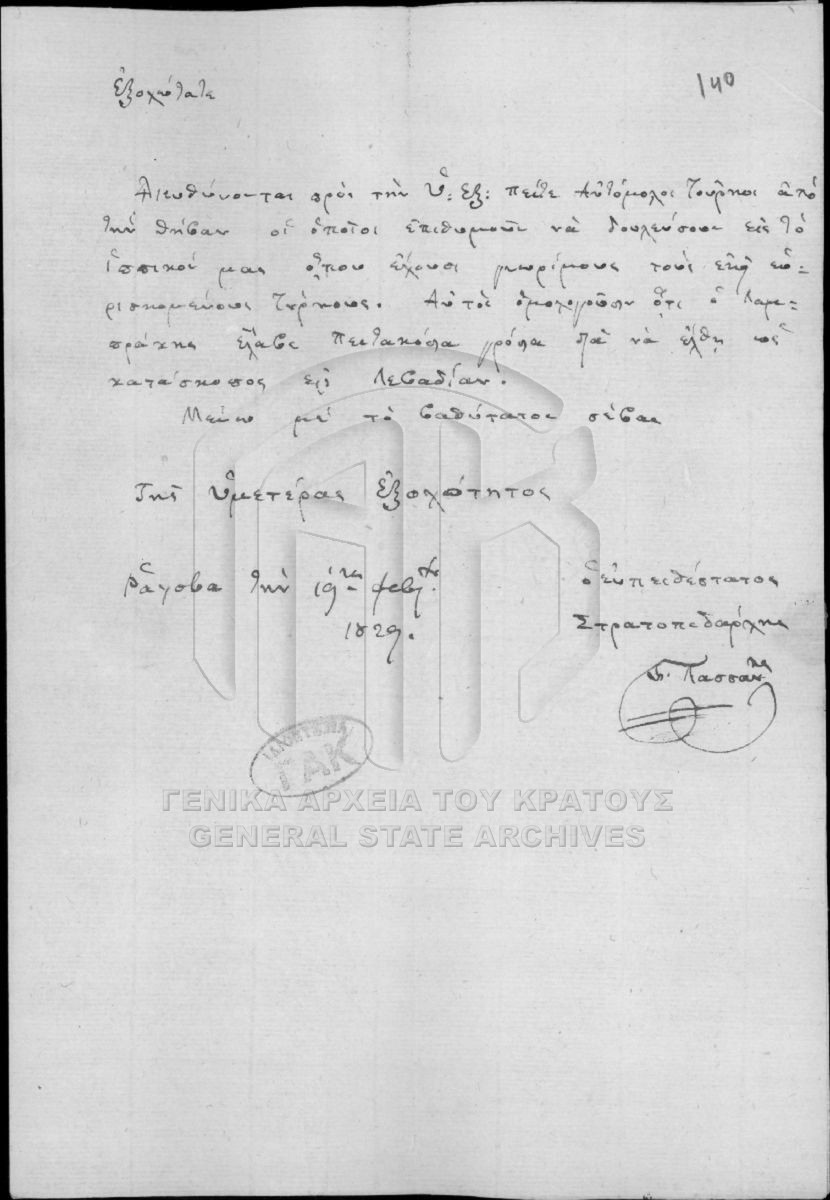 140
Ἐξοχώτατε
Διευθύνονται πρὸς τὴν Ὑ: Ἐξ: πέντε Αὐτόμολοι Τοῦρκοι ἀπὸ
τὴν Θήβαν οἱ ὁποῖοι ἐπιθυμοῦν νὰ δουλεύσουν εἰς τὸ
ἱππικόν μας ὅπου ἔχουσι γνωρίμους τοὺς ἐκεῖ εὑ-
ρισκομένους Τούρκους. Αὐτοὶ ὁμολογοῦσιν ὅτι ὁ Λαμ-
πράκης ἔλαβε πεντακόσια γρόσια διὰ νὰ ἔλθῃ ὡς
κατάσκοπος εἰς Λεβαδίαν.
Μένω μὲ τὸ βαθύτατον σέβας
Τῆς Ὑμετέρας Ἐξοχότητος
Ῥάχοβα τὴν 19 φεβ
1829.
ὁ εὐπειθέστατος
Στρατοπεδάρχης
ΓΑΚ
ΓΕΝΙΚΑ ΑΡΧΕΙΑ ΤΟΥ ΚΡΑΤΟΥΣ
GENERAL STATE ARCHIVES